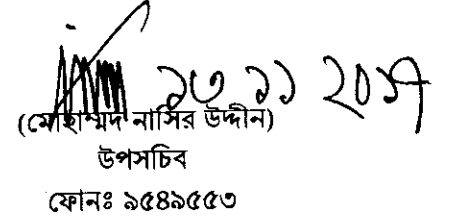 ১৩ ১১ ২০১৭
(মোহাম্মদ নাসির উদ্দীন)
উপসচিব
ফোনঃ ৯৫৪৯৫৫৩